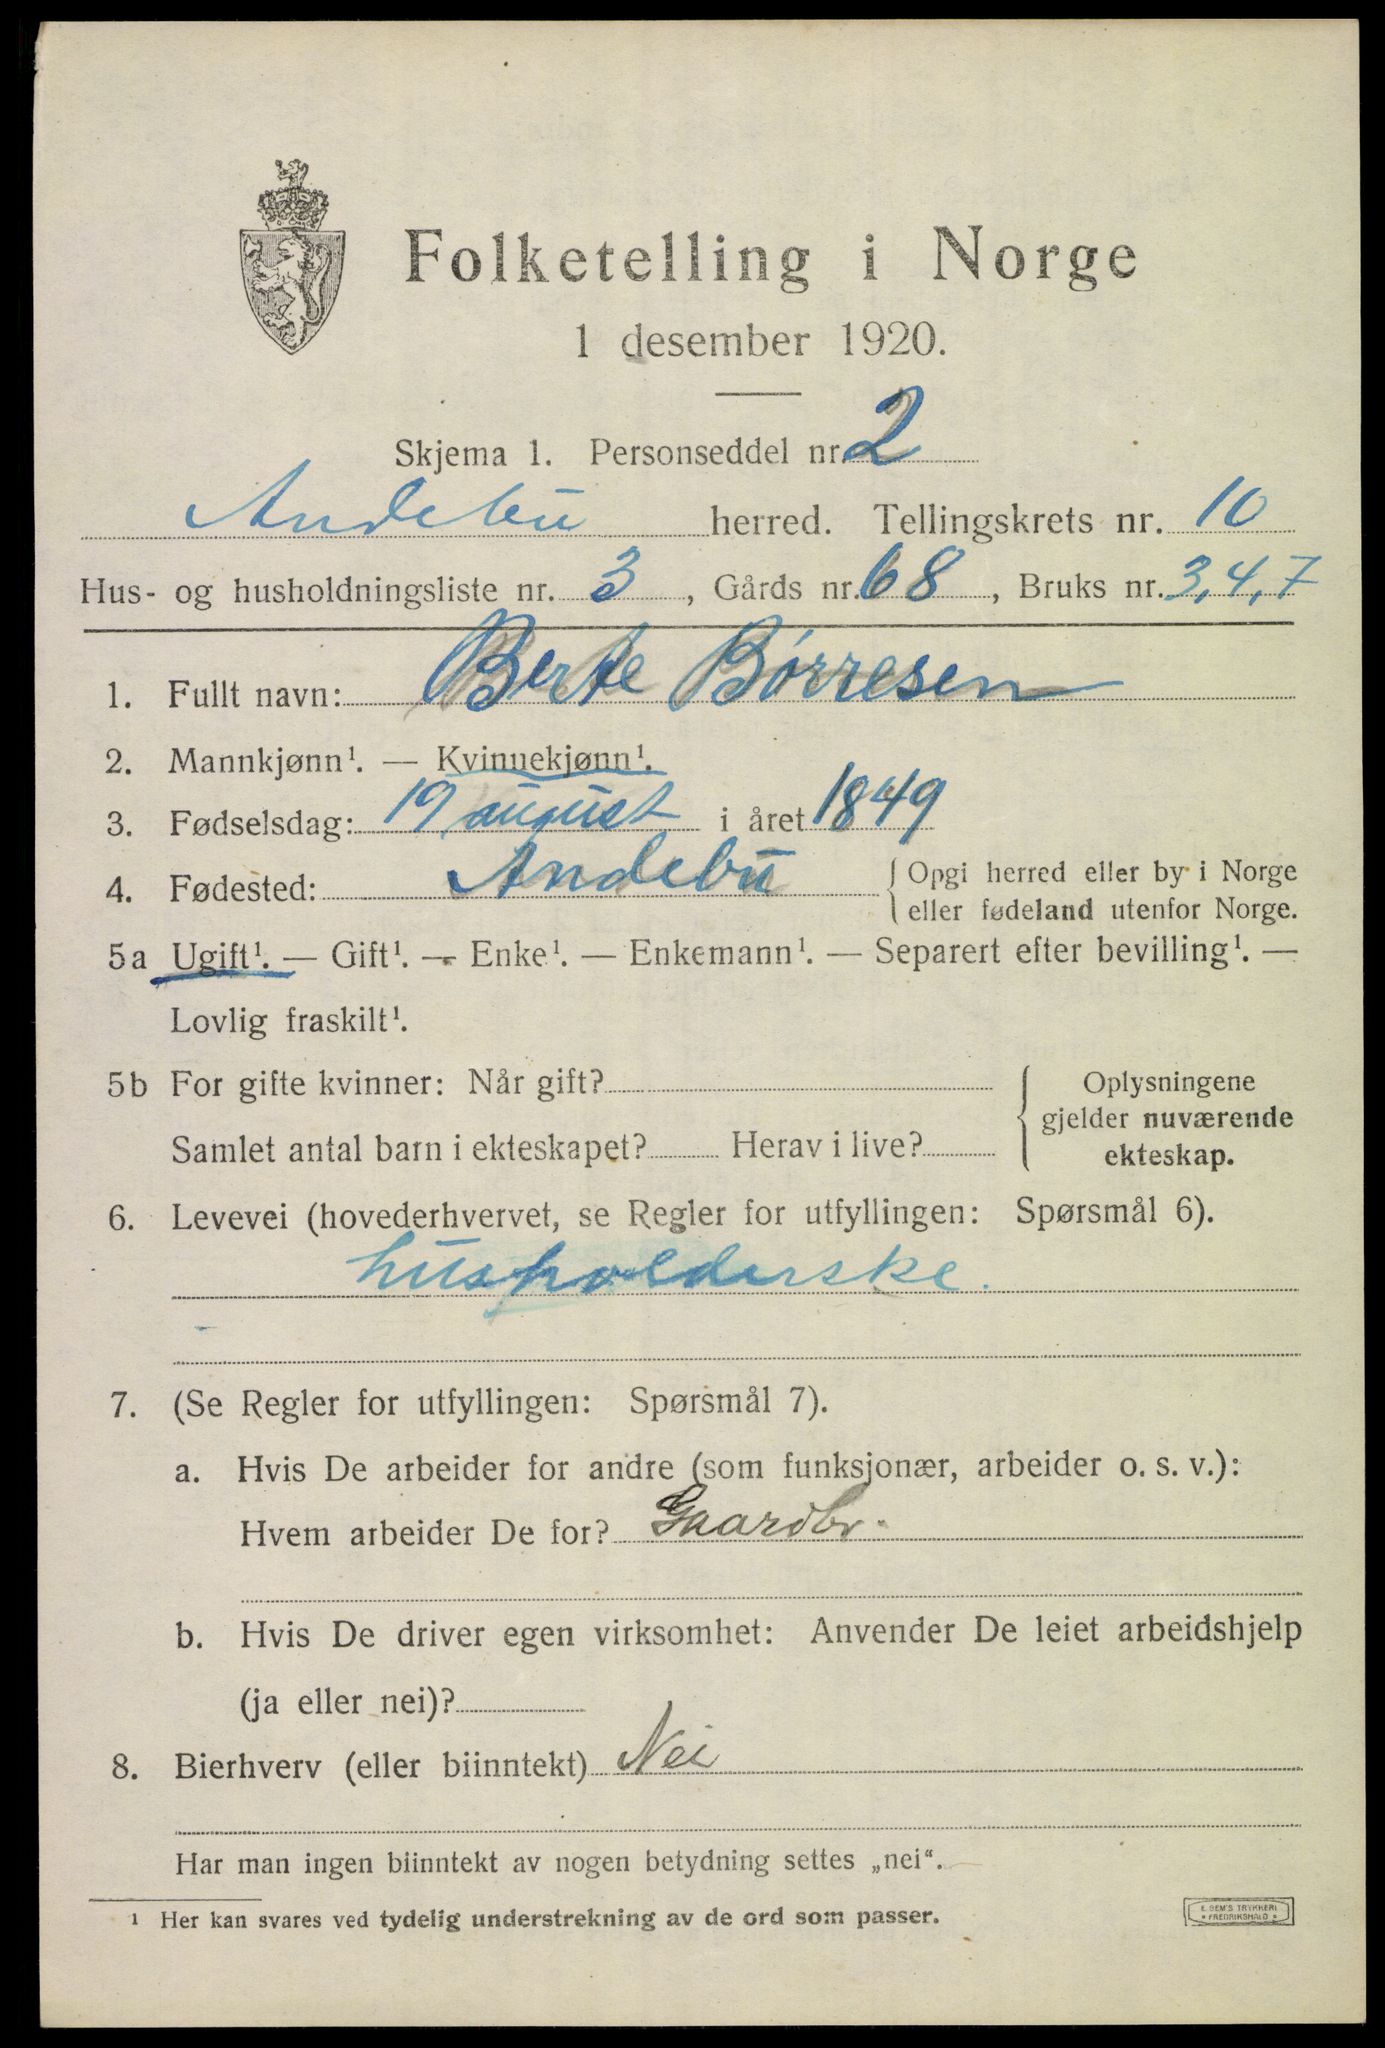 Folketelling i Norge
1 desember 1920.
Skjema 1. Personseddel nr. 2
Andebu herred. Tellingskrets nr. 10
Hus- og husholdningsliste nr. 3, Gårds nr. 68, Bruks nr. 3,4,7
1. Fullt navn: Berte Børresen
2. Mannkjønn¹. — Kvinnekjønn¹.
3. Fødselsdag: 19 august i året 1849
4. Fødested: Andebu { Opgi herred eller by i Norge
eller fødeland utenfor Norge.
5a Ugift¹. — Gift¹. — Enke¹. — Enkemann¹. — Separert efter bevilling¹. —
Lovlig fraskilt¹.
5b For gifte kvinner: Når gift? { Oplysningene
gjelder nuværende
Samlet antal barn i ekteskapet? Herav i live? ekteskap.
6. Levevei (hovederhvervet, se Regler for utfyllingen: Spørsmål 6).
husholderske.
7. (Se Regler for utfyllingen: Spørsmål 7).
a. Hvis De arbeider for andre (som funksjonær, arbeider o. s. v.):
Hvem arbeider De for? Gaardbr.
b. Hvis De driver egen virksomhet: Anvender De leiet arbeidshjelp
(ja eller nei)?
8. Bierhverv (eller biinntekt) Nei
Har man ingen biinntekt av nogen betydning settes „nei“.
¹ Her kan svares ved tydelig understrekning av de ord som passer.
E. SEM'S TRYKKERI
* FREDRIKSHALD *